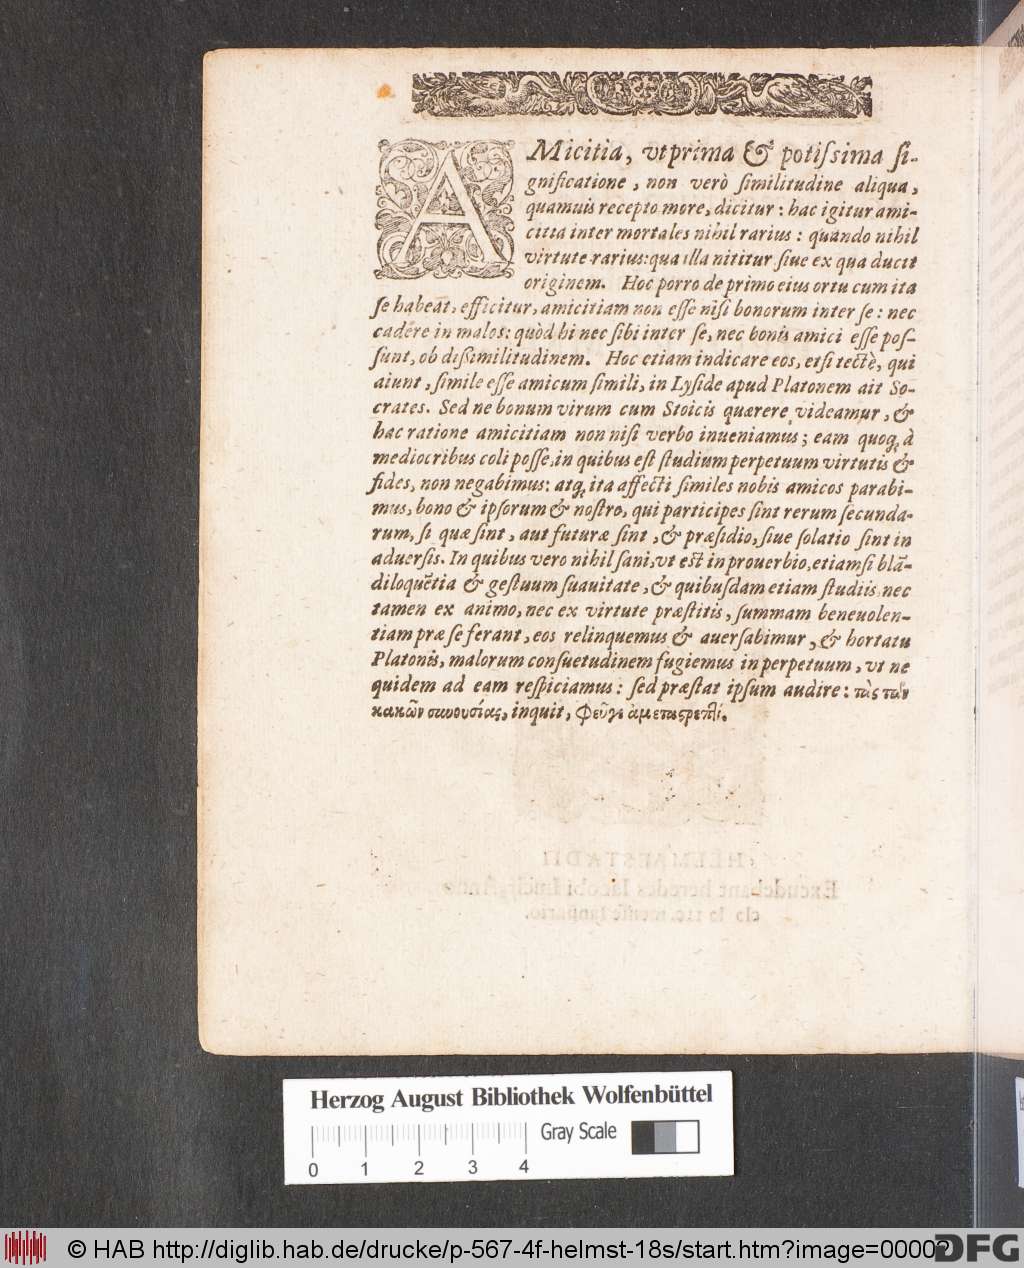 AMicitia, vt prima & potiſsima ſi-
gnificatione, non verò ſimilitudine aliqua,
quamuis recepto more, dicitur: hac igitur ami-
citia inter mortales nihil rarius: quando nihil
virtute rarius: qua illa nititur ſiue ex qua ducit
originem. Hoc porro de primo eius ortu cum ita
ſe habeat, efficitur, amicitiam non eſſe niſi bonorum inter ſe: nec
cadere in malos: quòd hi nec ſibi inter ſe, nec bonis amici eſſe poſ-
ſunt, ob diſsimilitudinem. Hoc etiam indicare eos, etſi tectè, qui
aiunt, ſimile eſſe amicum ſimili, in Lyſide apud Platonem ait So-
crates. Sed ne bonum virum cum Stoicis quærere videamur, &
hac ratione amicitiam non niſi verbo inueniamus; eam quoq; à
mediocribus coli poſſe, in quibus eſt ſtudium perpetuum virtutis &
fides, non negabimus: atq; ita affecti ſimiles nobis amicos parabi-
mus, bono & ipſorum & noſtro, qui participes ſint rerum ſecunda-
rum, ſi quæ ſint, aut futuræ ſint, & præſidio, ſiue ſolatio ſint in
aduerſis. In quibus vero nihil ſani, vt eſt in prouerbio, etiamſi blā-
diloquētia & geſtuum ſuauitate, & quibuſdam etiam ſtudiis nec
tamen ex animo, nec ex virtute præſtitis, ſummam beneuolen-
tiam præ ſe ferant, eos relinquemus & auerſabimur, & hortatu
Platonis, malorum conſuetudinem fugiemus in perpetuum, vt ne
quidem ad eam reſpiciamus: ſed præſtat ipſum audire: τὰς τῶν
κακῶν συνουσίας, inquit, φεῦγε ἀμεταστρεπτί.
Herzog August Bibliothek Wolfenbüttel
Gray Scale
0 1 2 3 4
© HAB http://diglib.hab.de/drucke/p-567-4f-helmst-18s/start.htm?image=00002
DFG